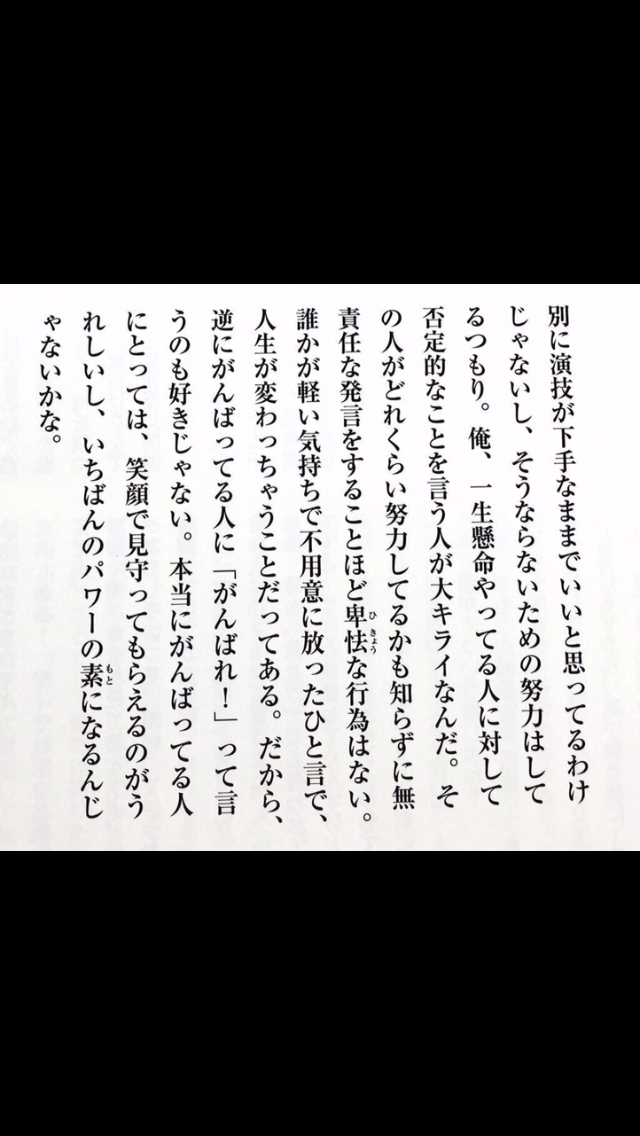 別に演技が下手なままでいいと思ってるわけ
じゃないし、そうならないための努力はして
るつもり。俺、一生懸命やってる人に対して
否定的なことを言う人が大キライなんだ。そ
の人がどれくらい努力してるかも知らずに無
責任な発言をすることほど卑怯な行為はない。
ひきょう
誰かが軽い気持ちで不用意に放ったひと言で、
人生が変わっちゃうことだってある。だから、
逆にがんばってる人に「がんばれ！」って言
うのも好きじゃない。本当にがんばってる人
にとっては、笑顔で見守ってもらえるのがう
れしいし、いちばんのパワーの素になるんじ
もと
ゃないかな。